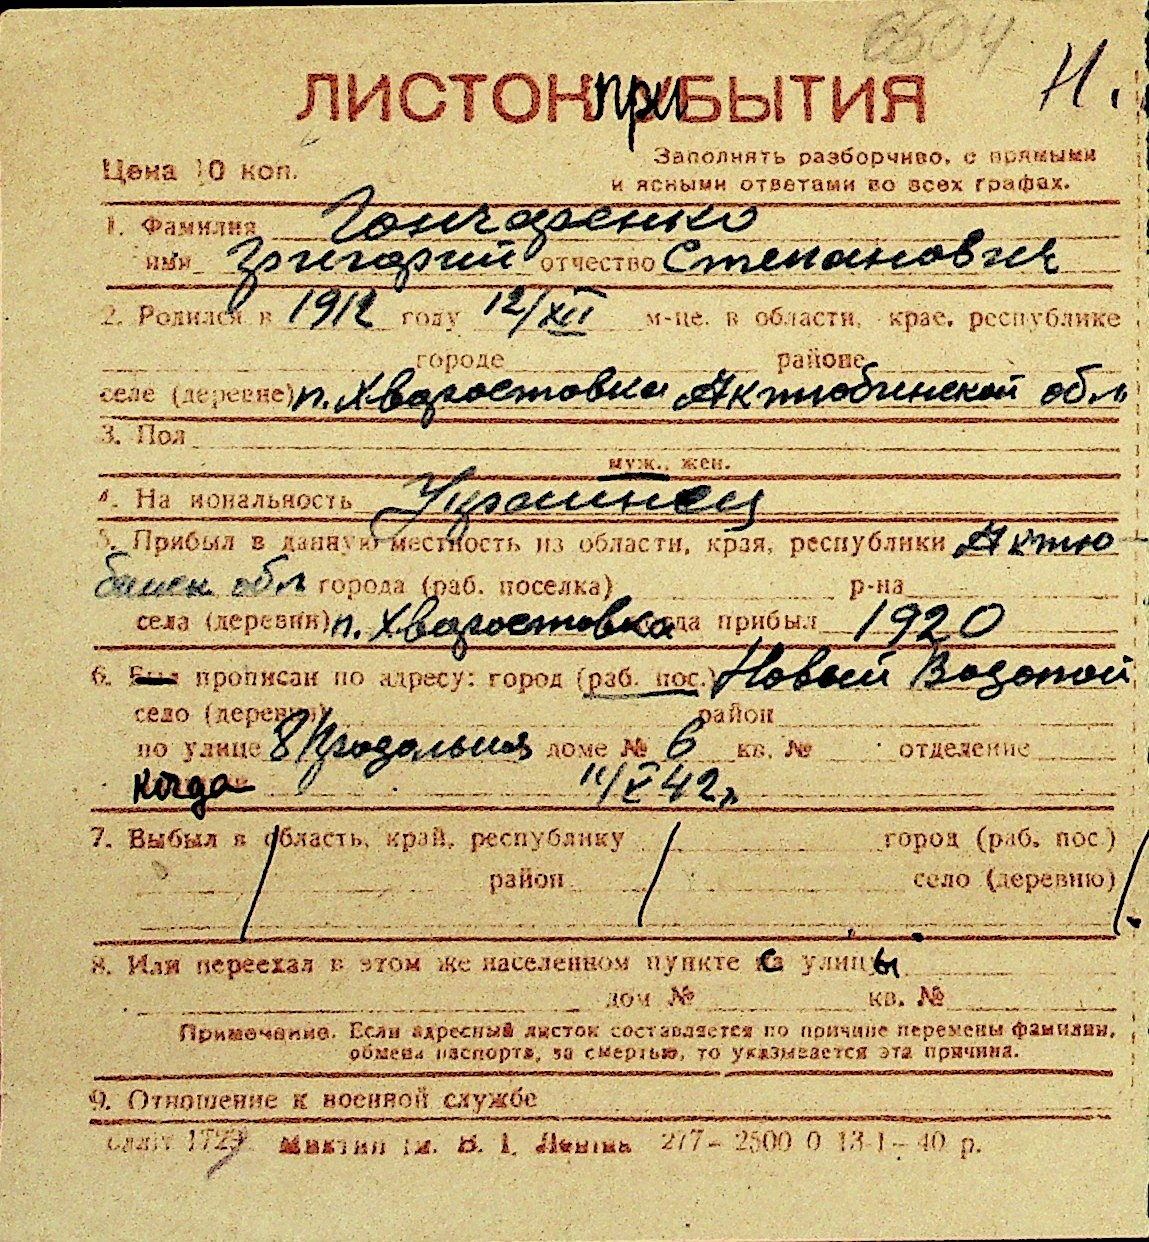 6504
Н.
ЛИСТОК ПРИБЫТИЯ
Цена 10 коп.
Заполнять разборчиво, с прямыми
и ясными ответами во всех графах.
1. Фамилия Гончаренко
имя Григорий отчество Степанович
2. Родился в 1912 году 12/XII м-це. в области, крае, республике
городе районе
селе (деревне) п. Хваростовка Актюбинской обл
3. Пол
муж., жен.
4. На иональность Украинец
5. Прибыл в данную местность из области, края, республики Актю
бинск обл города (раб. поселка) р-на
села (деревни) п. Хваростовка когда прибыл 1920
6. Был прописан по адресу: город (раб. пос.) Новый Водопой
село (деревня) район
по улице 8 Продольная доме № 6 кв. № отделение
когда 11/X 42 г.
7. Выбыл в область, край, республику город (раб. пос.)
район село (деревню)
8. Или переехал в этом же населенном пункте с улицы
дом № кв. №
Примечание. Если адресный листок составляется по причине перемены фамилии,
обмена паспорта, за смертью, то указывается эта причина.
9. Отношение к военной службе
1723 ім. В. І. Леніна 277 - 2500 0 13-I - 40 р.